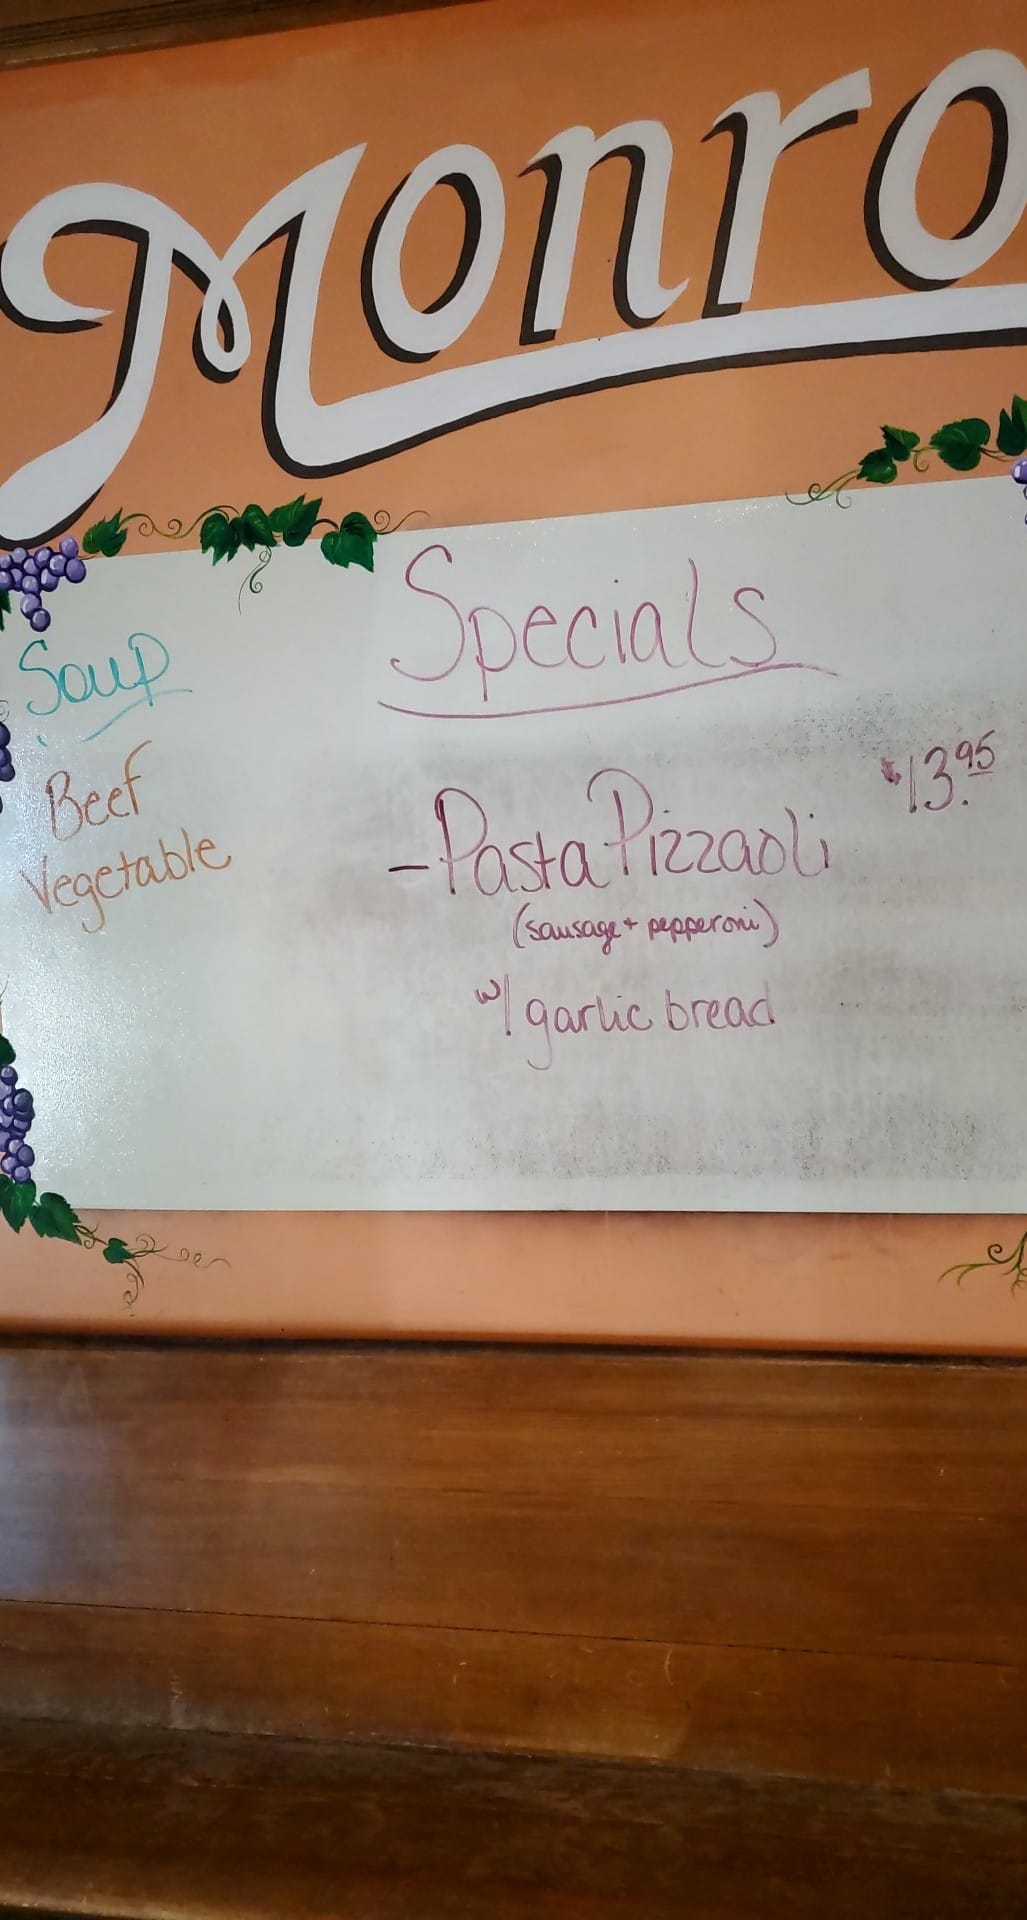 Monro
Specials
Soup
Beef
Vegetable
-Pasta Pizzaoli $13.95
(sausage + pepperoni)
w/ garlic bread